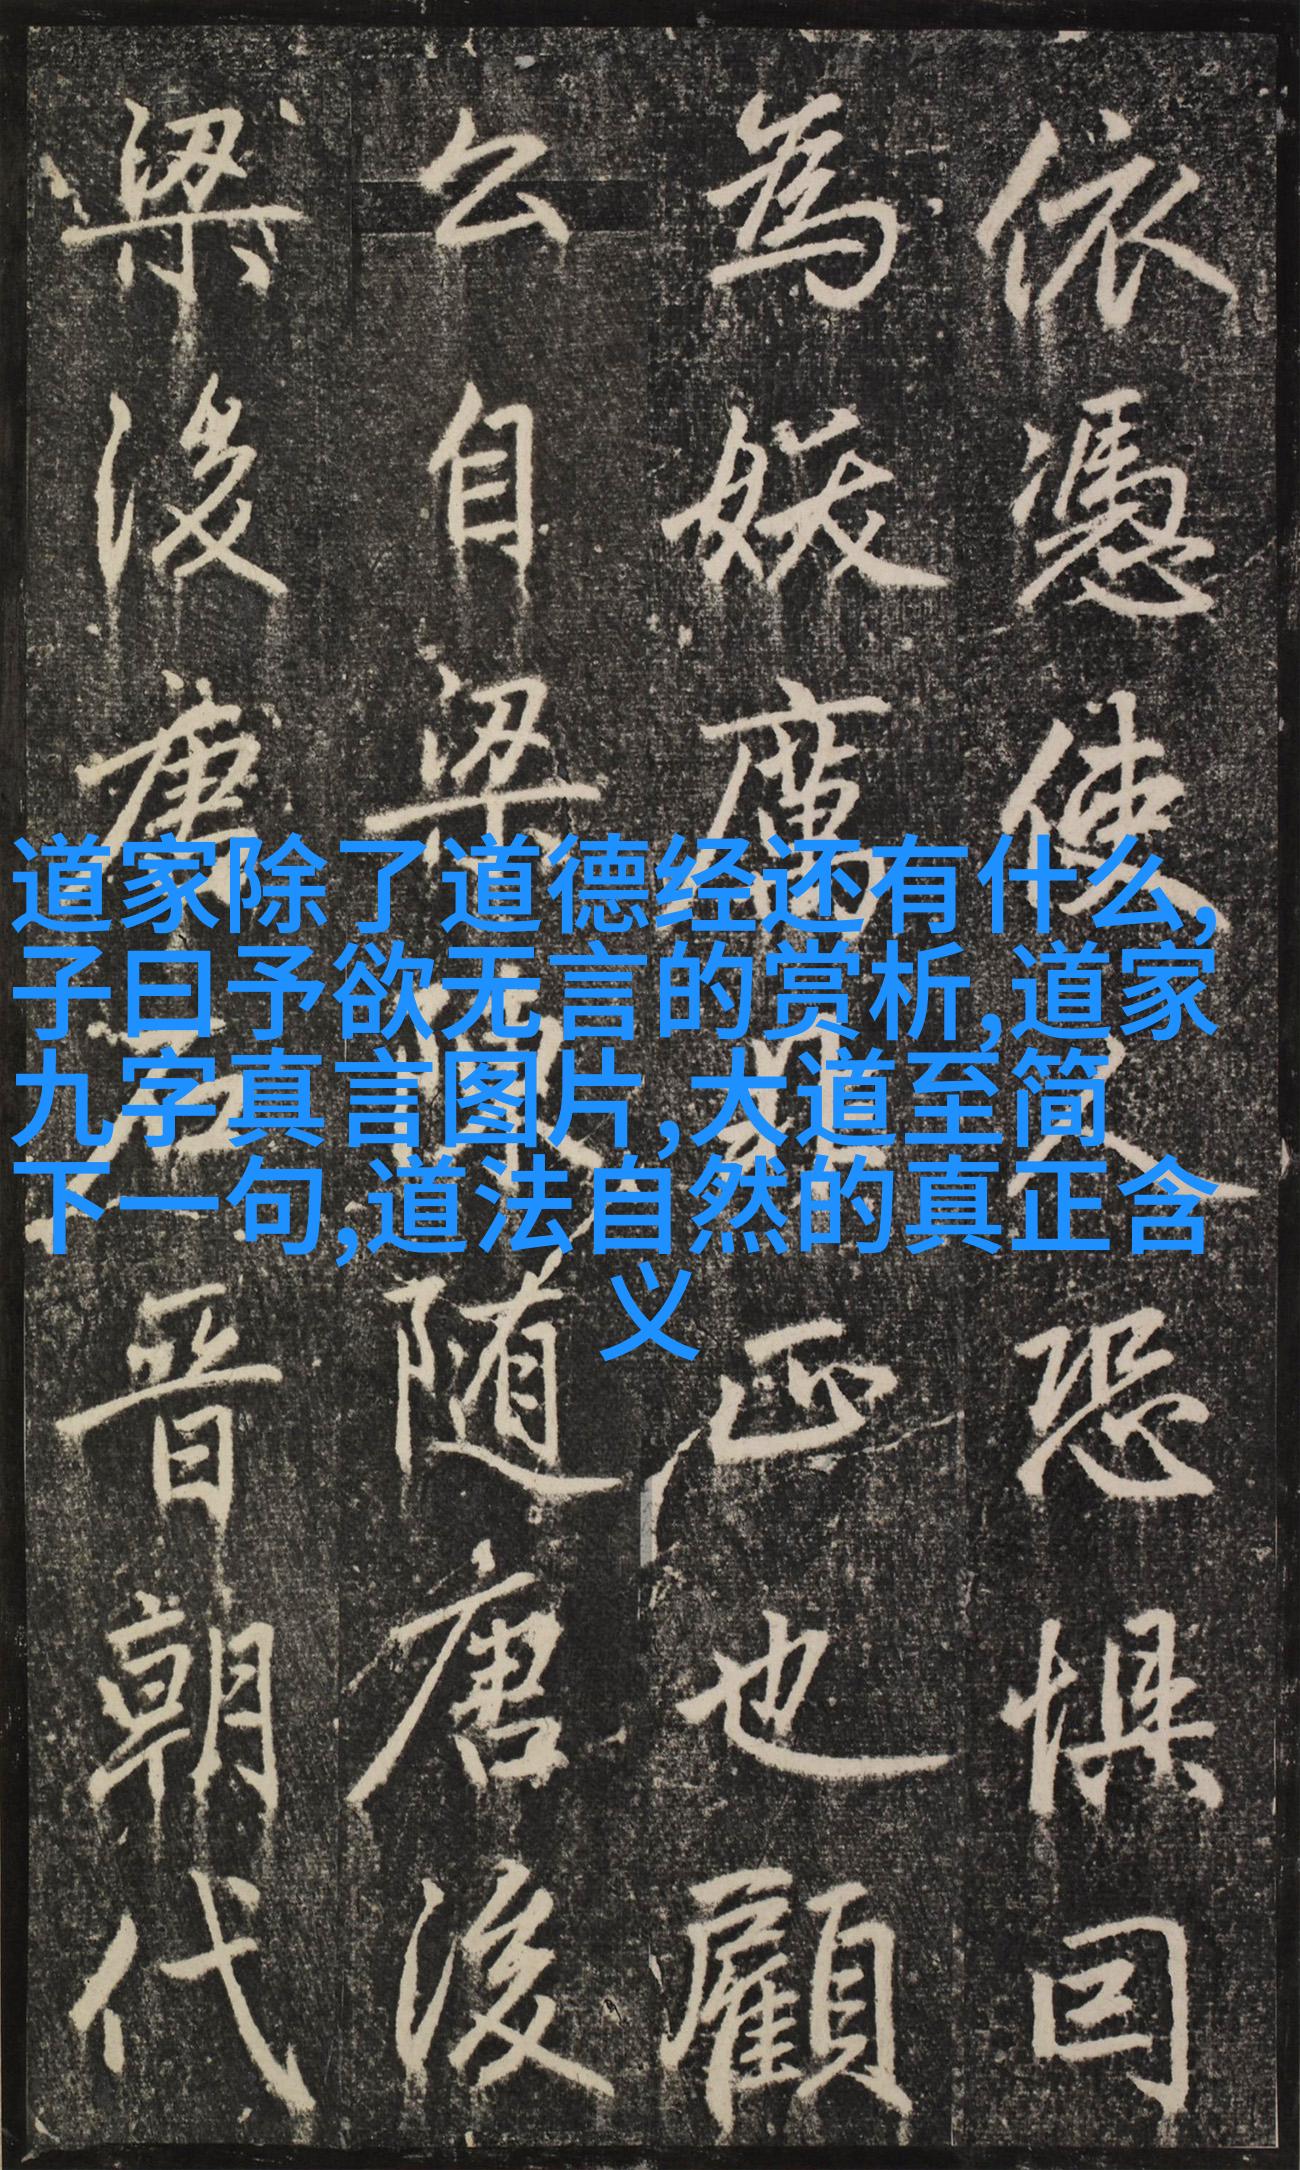 依憑使人恐懼囙
為妖厲正也顧
公自梁陳随唐後
梁後唐石晉朝代
道家除了道德经还有什么,
子曰予欲无言的赏析,道家
九字真言图片,大道至简
下一句,道法自然的真正含
义